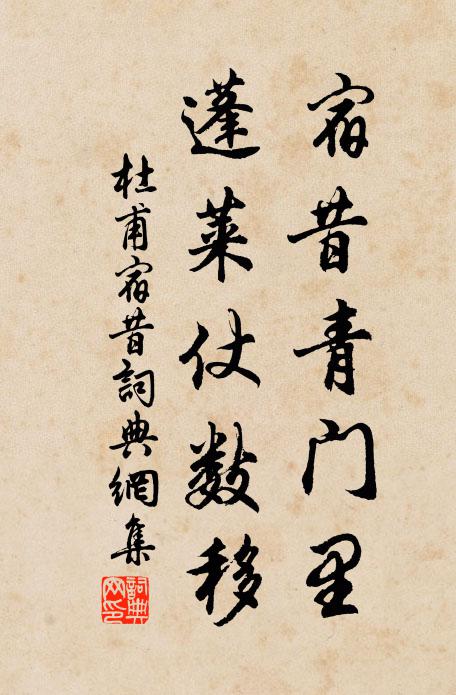 宿昔青门里
蓬莱仗数移
杜甫宿昔詞典網集
詞典
网印